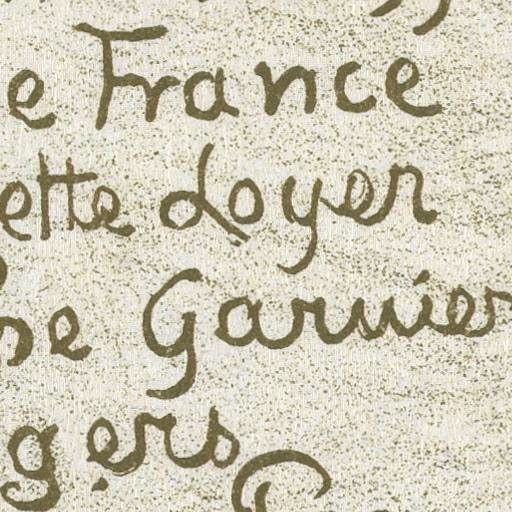 e France
ette Loyer
se Garnier
gers